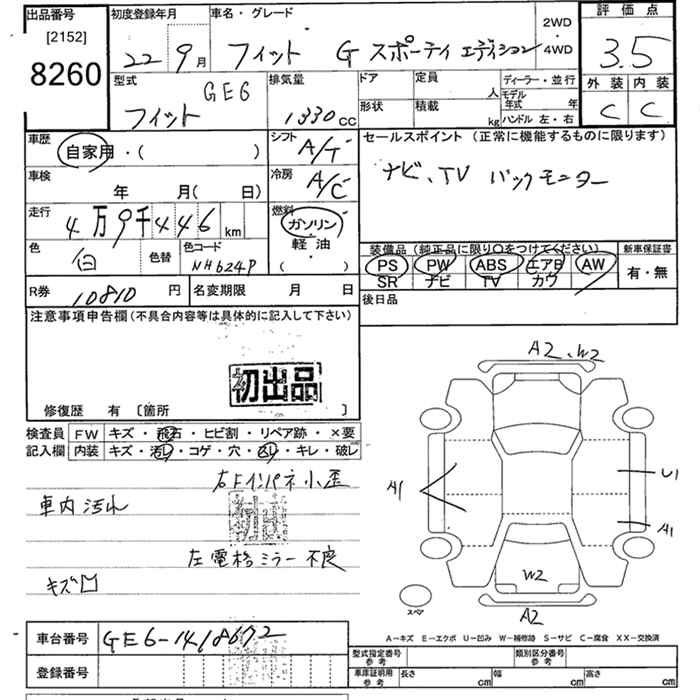 出品番号
[2152]
8260
初度登録年月
22 9月
車名・グレード
フィット G スポーティ エディション
2WD
・
4WD
評価点
3.5
外装 内装
C C
型式
GE6
フィット
排気量
1330 CC
ドア
形状
定員
人
積載
kg
ディーラー・並行
モデル年式 年
ハンドル 左・右
車歴
自家用・( )
シフト
A/T
セールスポイント (正常に機能するものに限ります)
ナビ、TV バックモニター
車検
年 月( 日)
冷房
A/C
走行
4万9千446 km
燃料
ガソリン
軽・油
( )
色
白
色替
色コード
NH624P
装備品 (純正品に限り〇をつけてください)
PS PW ABS エアB AW
SR ナビ TV カワ
新車保証書
有・無
R券
10810 円
名変期限 月 日
後日品
注意事項申告欄(不具合内容等は具体的に記入して下さい)
初出品
修復歴 有 〔箇所 〕
検査員
記入欄
FW キズ・飛石・ヒビ割・リペア跡・×要
内装 キズ・汚レ・コゲ・穴・スレ・キレ・破レ
右Fインパネ小歪
車内汚れ
左電格ミラー不良
キズ凹
A2、W2
A1
U1
A1
W2
A2
スペア
A-キズ E-エクボ U-凹み W-補修跡 S-サビ C-腐食 XX-交換済
車台番号
GE6-1418672
登録番号
型式指定番号
参考
類別区分番号
参考
車庫証明用
参考
長さ cm
幅 cm
高さ cm